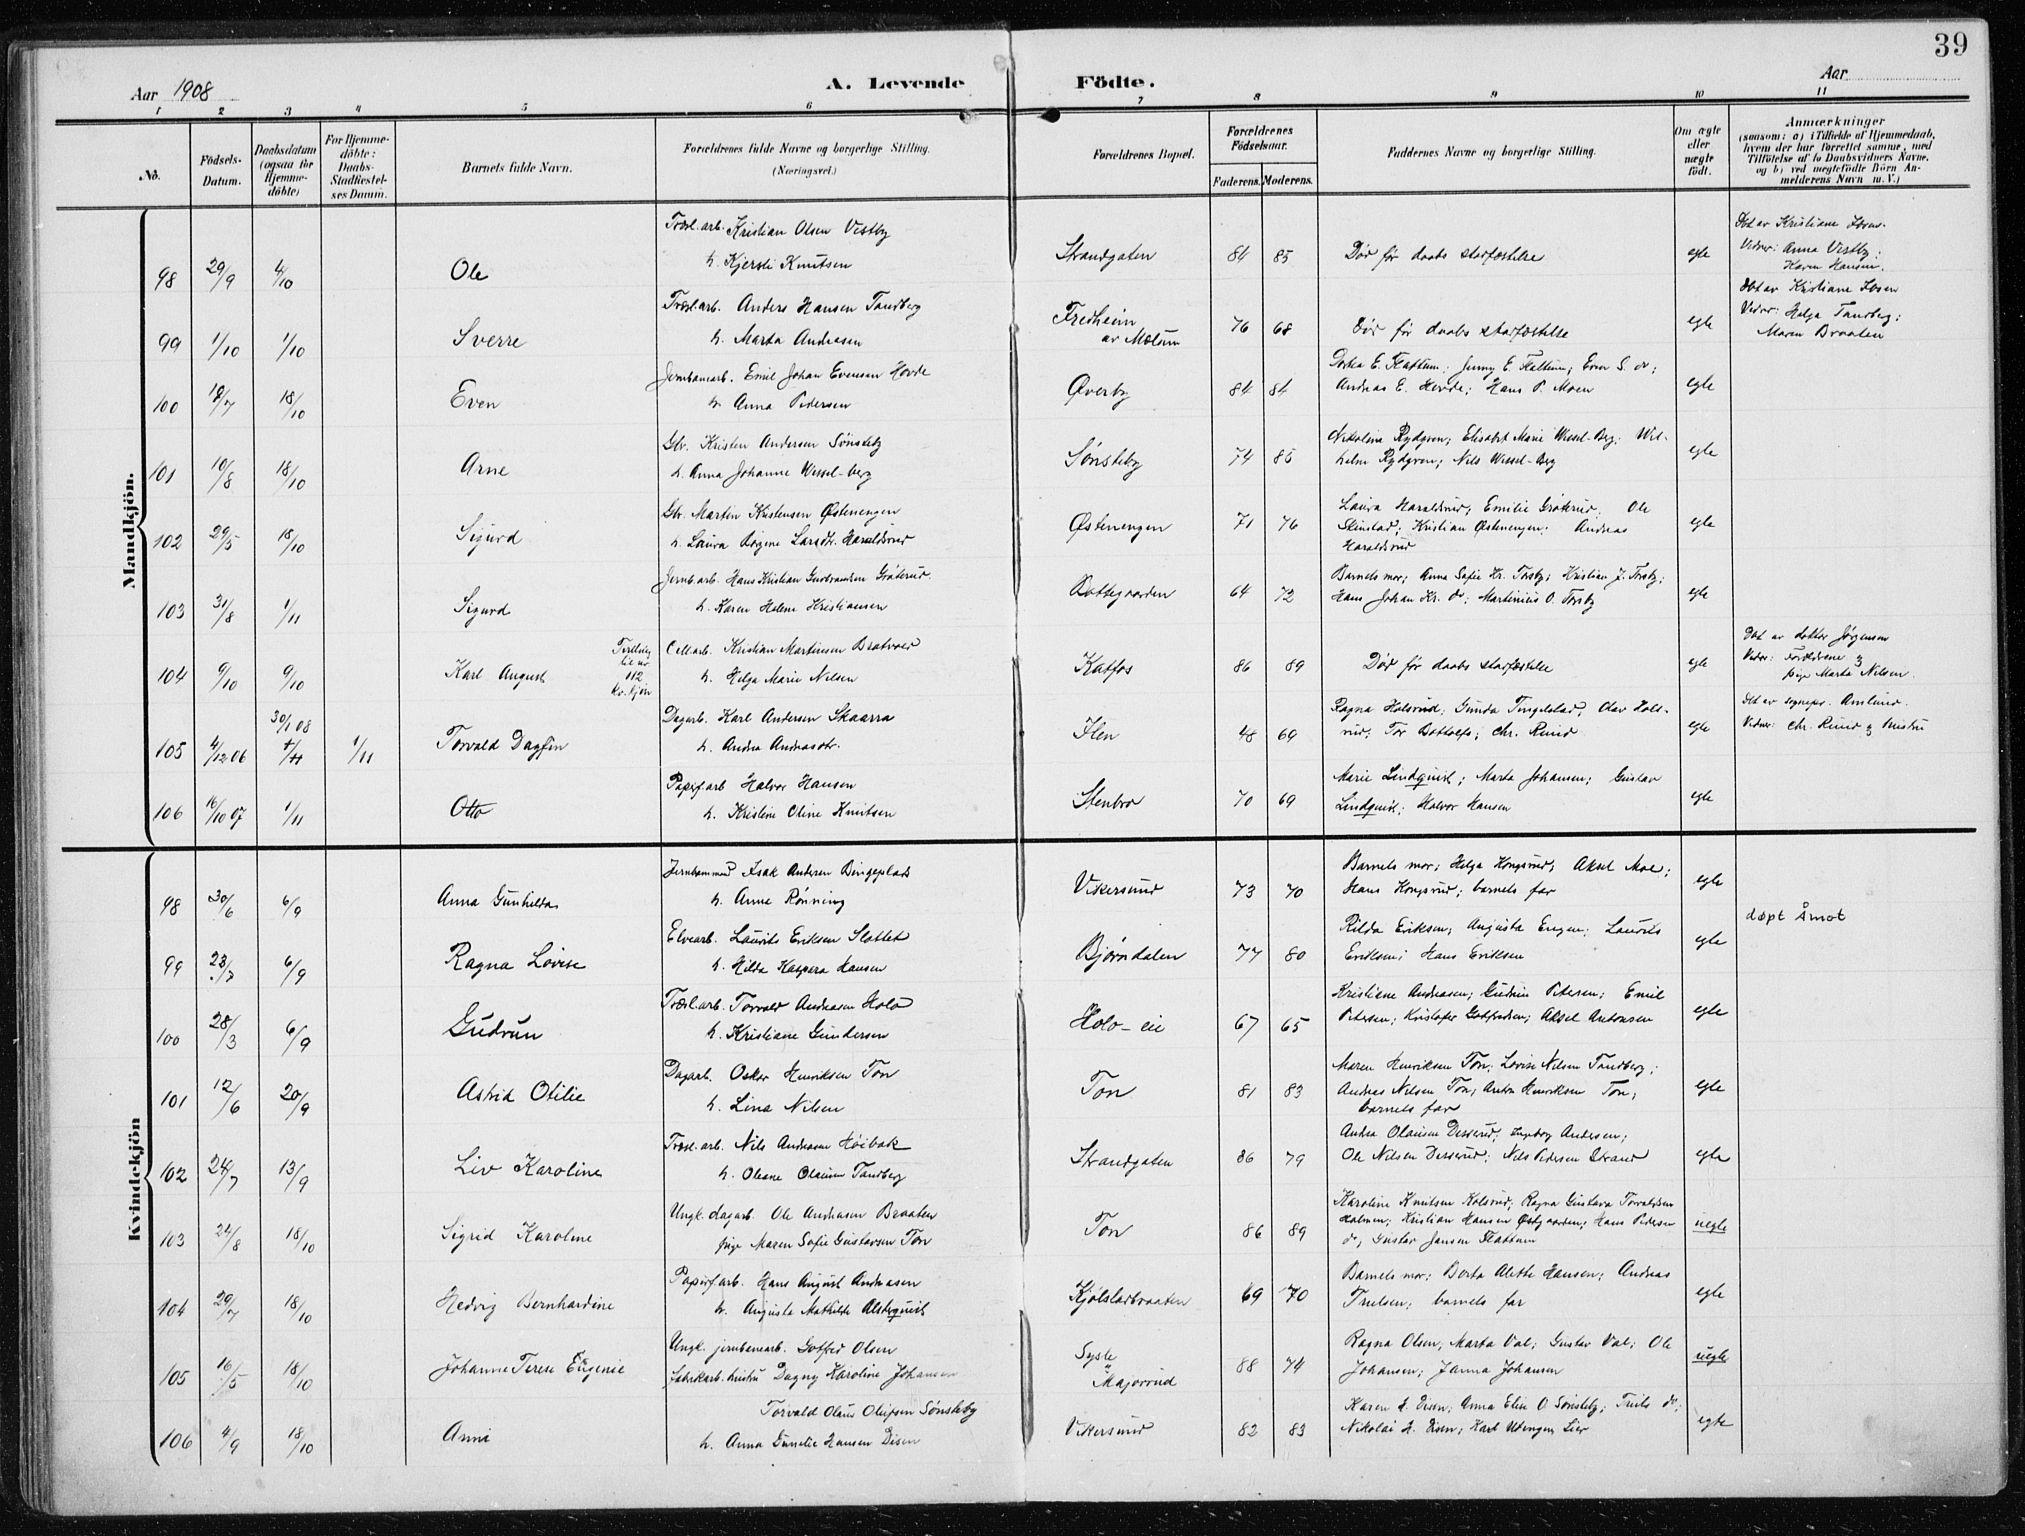 39
Aar 1908
A. Levende Födte.
Aar
1 2 3 4 5 6 7 8 9 10 11
No.
Födsels-Datum.
Daabsdatum (ogsaa for Hjemme-döbte)
For Hjemme-döbte: Daabs-Stadfæstel-ses Datum.
Barnets fulde Navn.
Forældrenes fulde Navne og borgerlige Stilling. (Næringsvei.)
Forældrenes Bopæl.
Forældrenes Födselsaar.
Faderens. Moderens.
Faddernes Navne og borgerlige Stilling.
Om ægte eller uægte födt.
Anmærkninger
(saasom: a) i Tilfælde af Hjemmedaab, hvem der har forrettet samme, med Tilföielse af to Daabsvidners Navne, og b) ved uægtefödte Börn An-melderens Navn m. V.)
Mandkjön.
98 29/9 4/10 Ole
Træsl.arb. Kristian Olsen Vestby
h. Kjersti Knutsen
Strandgaten 84 85 Død før daabs stadfæstelse egte
Døt av Kristiane Ibsen.
Vidner: Anna Vestby;
Karen Hansen.
99 1/10 1/10 Sverre
Træsl.arb. Anders Hansen Tandberg
h. Marta Andreasen
Fredheim
av Mælum 76 68 Død før daabs stadfæstelse egte
Døt av Kristiane Ibsen
Vidner: Helga Tandberg;
Maren Braaten
100 18/7 18/10 Even
Jernbanearb. Emil Johan Evensen Hovde
h. Anna Pedersen
Øverby 84 84
E. Flattum; Jenny E. Flattum; Even S. do;
Andreas E. Hovde; Hans P. Moen egte
101 10/8 18/10 Arne
Gbr. Kristen Andersen Sønsteby
h. Anna Johanne Wessel-Berg
Sønsteby 74 85
Nikoline Rydgren; Elisabet Marie Wessel-Berg; Wil-
helm Rydgren; Nils Wessel-Berg egte
102 29/5 18/10 Sigurd
Gbr. Martin Kristensen Østenengen
h. Laura Larsdtr. Haraldsrud
Østenengen 71 76
Laura Haraldsrud; Emilie Gröterud; Ole
Skinstad; Kristian Østenengen; Andreas
Haraldsrud egte
103 31/8 1/11 Sigurd
Jernb.arb. Hans Kristian Gudbrandsen Gröterud.
h. Karen Helene Kristiansen
Bottegaarden 64 72
Barnets mor; Anna Sofie Kr. Torsby; Kristian J. Torsby;
Hans Johan Kr. do; Martinius O. Torsby egte
104 9/10 9/10 Karl August
Tvilling
til nr.
112
kv.kjön
Cell.arb. Kristian Martinsen Bratvold
h. Helga Marie Nilsen
Katfos 86 89 Død før daabs stadfæstelse egte
Døt av doktor Jørgensen
Vidner: Forældrene og
pige Marta Nilsen.
105 4/12 06 30/1 08 1/11 1/11 Torvald Dagfin
Dagarb. Karl Andersen Skaarra
h. Andrea Andreasdtr.
Ilen 48 69
Ragna Holsrud; Gunda Tingelstad; Olav Hols-
rud; Tor Bottolfs; Chr. Ruud egte
Døt av sogneprs. Amlund.
Vidner: Chr. Ruud og hustru
106 16/10 07 1/11 Otto
Papirf.arb Halvor Hansen
h. Kristine Oline Knutsen
Stenbro 70 69
Marie Lindquist; Marta Johansen; Gustav
Lindquist; Halvor Hansen egte
Kvindekjön
98 30/6 6/9 Anna Gunhilda
Isak Andersen Bingeplads
h. Anne Rönning
Vikersund 73 70
Barnets mor; Helga Kongsrud; Aksel Moe;
Hans Kongsrud; barnets far egte
døpt Åmot
99 23/7 6/9 Ragna Lovise
Elvearb. Laurits Eriksen Slottet
h. Hilda Kaspera Hansen
Bjørndalen 77 80
Rilda Eriksen; Augusta Engen; Laurits
Eriksen; Hans Eriksen egte
100 28/3 6/9 Gudrun
Træsl.arb. Torvald Andreasen Holo
h. Kristiane Gundersen
Holo-eie 67 65
Kristiane Andreasen; Gudrun Petersen; Emil
Petersen; Kristofer Gotfredsen; Aksel Antonsen egte
101 12/6 20/9 Astrid Otilie
Dagarb. Oskar Henriksen Ton
h. Lina Nilsen
Ton 81 83
Maren Henriksen Ton; Lovise Nilsen Tandberg;
Andreas Nilsen Ton; Anton Henriksen Ton;
barnets far egte
102 24/7 13/9 Liv Karoline
Træsl.arb. Nils Andreasen Høibak
h. Oleane Olausen Tandberg
Strandgaten 86 79
Andrea Olausen Desserud; Ingeborg Andersen;
Ole Nilsen Desserud; Nils Pedersen Strand egte
103 24/8 18/10 Sigrid Karoline
Ungk. dagarb. Ole Andreasen Braaten
pige Maren Sofie Gustavsen Ton
Ton 86 89
Karoline Knutsen Kolsrud; Ragna Gustava Torvaldsen
Holmen; Kristian Hansen Østgaarden; Hans Pedersen
do; Gustav Jansen Flattum uegte
104 29/7 18/10 Hedvig Bernhardine
Papirf.arb. Hans August Andreasen
h. Augusta Mathilde Alsterquist
Kjølstadbraaten 69 70
Barnets mor; Berta Alette Hansen; Andreas
Truelsen; barnets far egte
105 16/5 18/10 Johanne Terese Eugenie
Ungk. jernbanearb. Gotfred Olsen
fabrikarb. hustru Dagny Karoline Johansen
Sysle
Majorrud 88 74
Ragna Olsen; Marta Val; Gustav Val; Ole
Johansen; Janna Johansen uegte
106 4/9 18/10 Anni
Torvald Olaus Olufsen Sønsteby
h. Anna Gunelie Hansen Disen
Vikersund 82 83
Karen H. Disen; Anna Elise O. Sønsteby; Truls do;
Nikolai H. Disen; Karl Utengen, Lier egte